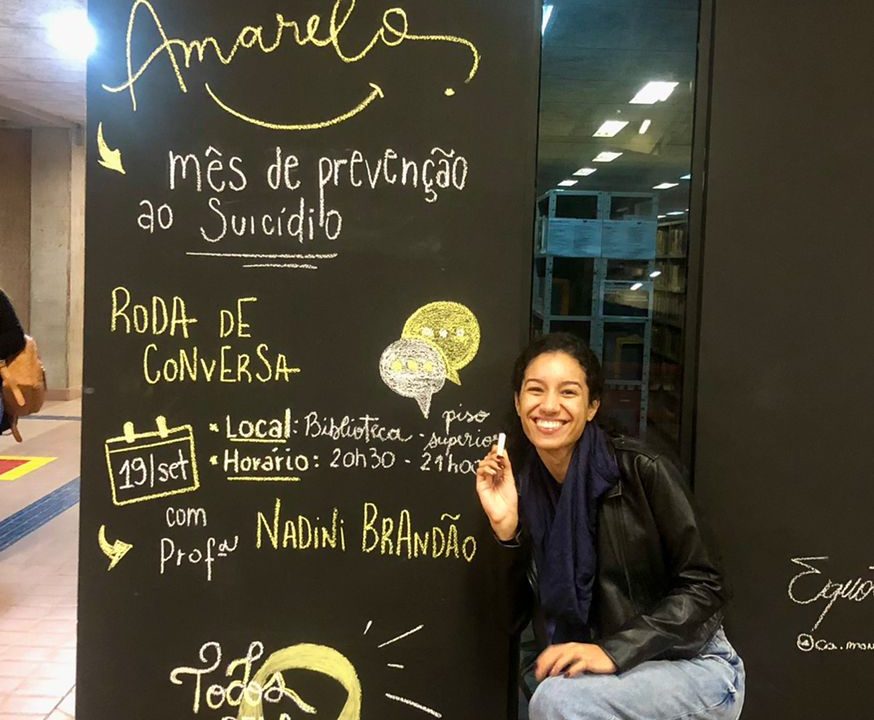 Amarelo
mês de prevenção
ao Suicídio
RODA DE
CONVERSA
19/set
* Local: Biblioteca - piso
superior
* Horário: 20h30 - 21h00
com
Profª NADINI BRANDÃO
Todos
PELA